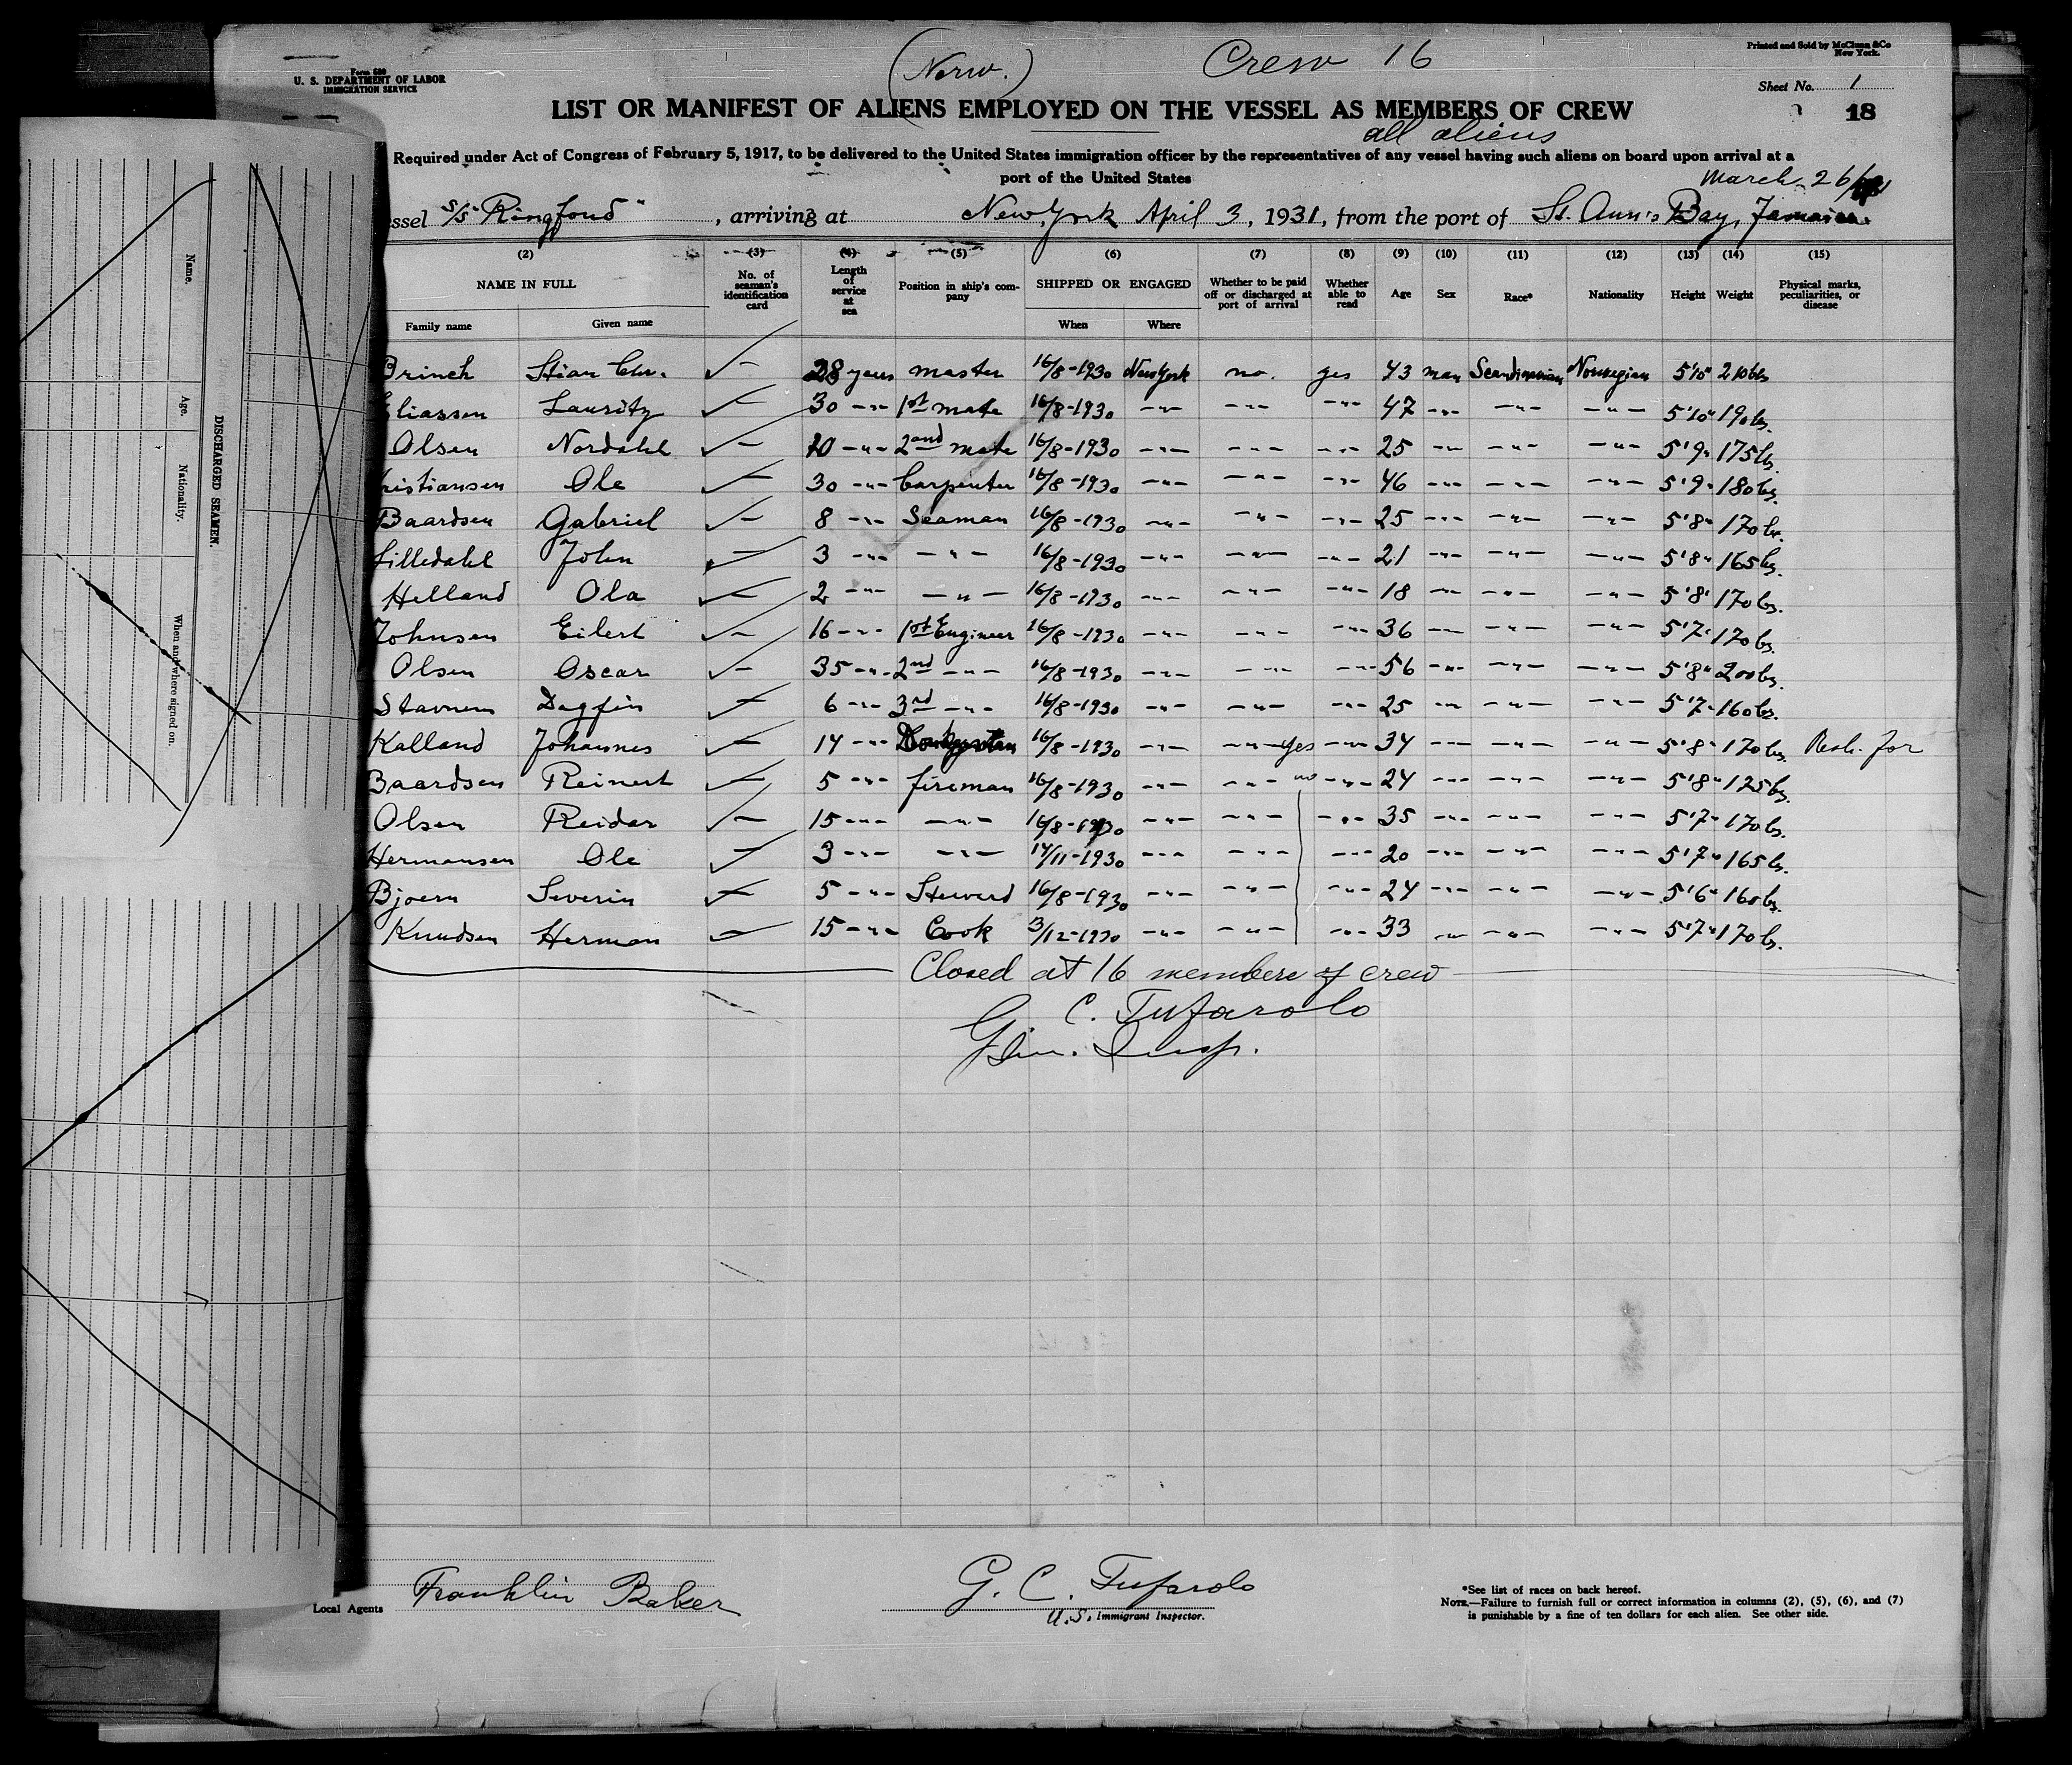 Form 680
U. S. DEPARTMENT OF LABOR
IMMIGRATION SERVICE
(Norw.)
Crew 16
Printed and Sold by McClunn &Co
New York.
Sheet No. 1
LIST OR MANIFEST OF ALIENS EMPLOYED ON THE VESSEL AS MEMBERS OF CREW
18
all aliens
Required under Act of Congress of February 5, 1917, to be delivered to the United States immigration officer by the representatives of any vessel having such aliens on board upon arrival at a
port of the United States
March 26/
essel S/S "Ringfond", arriving at New York April 3, 1931, from the port of St. Ann's Bay, Jamaica.
(2) (3) (4) (5) (6) (7) (8) (9) (10) (11) (12) (13) (14) (15)
NAME IN FULL No. of seaman's identification card Length of service at sea Position in ship's company SHIPPED OR ENGAGED Whether to be paid off or discharged at port of arrival Whether able to read Age Sex Race* Nationality Height Weight Physical marks, peculiarities, or disease
Family name Given name When Where
Brinch Stian Chr. ✓ 28 years master 16/8-1930 New York no. yes 43 man Scandinavian Norwegian 5'10" 210 lbs
Eliassen Lauritz ✓ 30 -"- 1st mate 16/8-1930 -"- -"- -"- 47 -"- -"- -"- 5'10" 190 lbs.
Olsen Nordahl ✓ 10 -"- 2nd mate 16/8-1930 -"- -"- -"- 25 -"- -"- -"- 5'9" 175 lbs.
ristiansen Ole ✓ 30 -"- Carpenter 16/8-1930 -"- -"- -"- 46 -"- -"- -"- 5'9" 180 lbs.
Baardsen Gabriel ✓ 8 -"- Seaman 16/8-1930 -"- -"- -"- 25 -"- -"- -"- 5'8" 170 lbs.
Lilledahl John ✓ 3 -"- -"- 16/8-1930 -"- -"- -"- 21 -"- -"- -"- 5'8" 165 lbs.
Helland Ola ✓ 2 -"- -"- 16/8-1930 -"- -"- -"- 18 -"- -"- -"- 5'8" 170 lbs.
Johnsen Eilert ✓ 16 -"- 1st Engineer 16/8-1930 -"- -"- -"- 36 -"- -"- -"- 5'7" 170 lbs.
Olsen Oscar ✓ 35 -"- 2nd -"- 16/8-1930 -"- -"- -"- 56 -"- -"- -"- 5'8" 200 lbs.
Stavnem Dagfin ✓ 6 -"- 3rd -"- 16/8-1930 -"- -"- -"- 25 -"- -"- -"- 5'7" 160 lbs.
Kalland Johannes ✓ 14 -"- 16/8-1930 -"- -"- yes -"- 34 -"- -"- -"- 5'8" 170 lbs. for
Baardsen Reinert ✓ 5 -"- fireman 16/8-1930 -"- -"- no -"- 24 -"- -"- -"- 5'8" 175 lbs.
Olsen Reidar ✓ 15 -"- -"- 16/8-1930 -"- -"- -"- 35 -"- -"- -"- 5'7" 170 lbs.
Hermansen Ole ✓ 3 -"- -"- 14/11-1930 -"- -"- -"- 20 -"- -"- -"- 5'7" 165 lbs.
Bjoern Severin ✓ 5 -"- Steward 16/8-1930 -"- -"- -"- 24 -"- -"- -"- 5'6" 160 lbs.
Knudsen Herman ✓ 15 -"- Cook 3/12-1930 -"- -"- -"- 33 -"- -"- -"- 5'7" 170 lbs.
Closed at 16 members of crew
G. C. Tufarolo
Imm. Insp.
Local Agents Franklin Baker
G. C. Tufarolo
U.S. Immigrant Inspector.
*See list of races on back hereof.
NOTE.—Failure to furnish full or correct information in columns (2), (5), (6), and (7)
is punishable by a fine of ten dollars for each alien. See other side.
DISCHARGED SEAMEN.
Name.
Age.
Nationality.
When and where signed on.